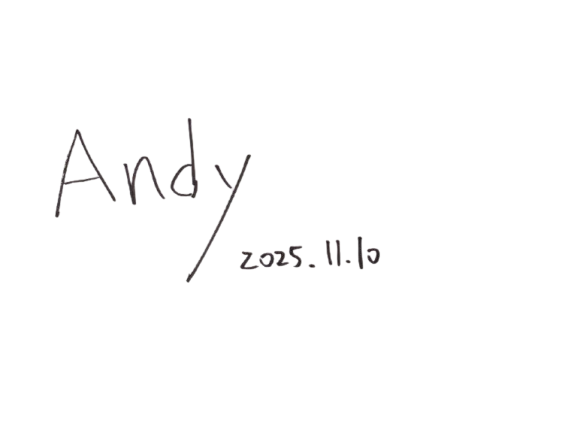 Andy
2025.11.10